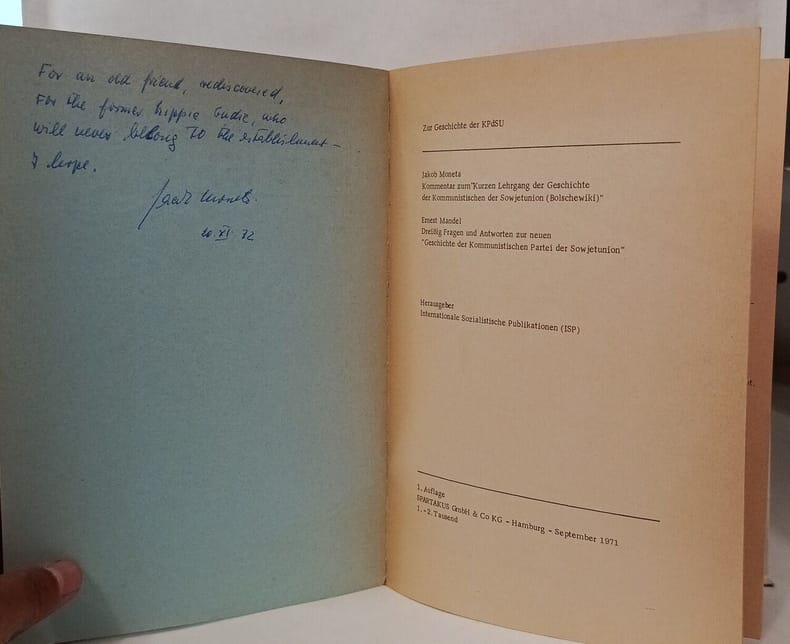 For an old friend, rediscovered,
For the former hippie Gudie, who
will never belong to the establishment –
I hope.
Jakob Moneta.
20. XI. 72
Zur Geschichte der KPdSU
Jakob Moneta
Kommentar zum "Kurzen Lehrgang der Geschichte
der Kommunistischen der Sowjetunion (Bolschewiki)"
Ernest Mandel
Dreißig Fragen und Antworten zur neuen
"Geschichte der Kommunistischen Partei der Sowjetunion"
Herausgeber
Internationale Sozialistische Publikationen (ISP)
1. Auflage
SPARTAKUS GmbH & Co KG - Hamburg - September 1971
1.-2. Tausend